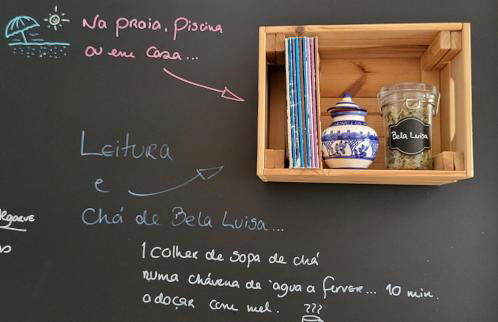 Na praia, piscina
ou em casa...
Leitura
e
Chá de Bela Luisa...
1 colher de sopa de chá
numa chávena de água a ferver... 10 min.
adoçar com mel. ???
Bela Luisa
Algarve